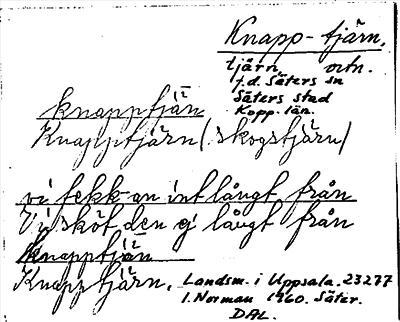 Knapp-tjärn,
tjärn, ortn.
f.d. Säters sn
Säters stad
Kopp. län.
knapptjän
Knapptjärn (skogstjärn)
vi fekk an int långt från
Vi sköt den ej långt från
knapptjän
Knapptjärn. Landsm. i Uppsala. 23277
I. Norman 1960. Säter.
DAL.